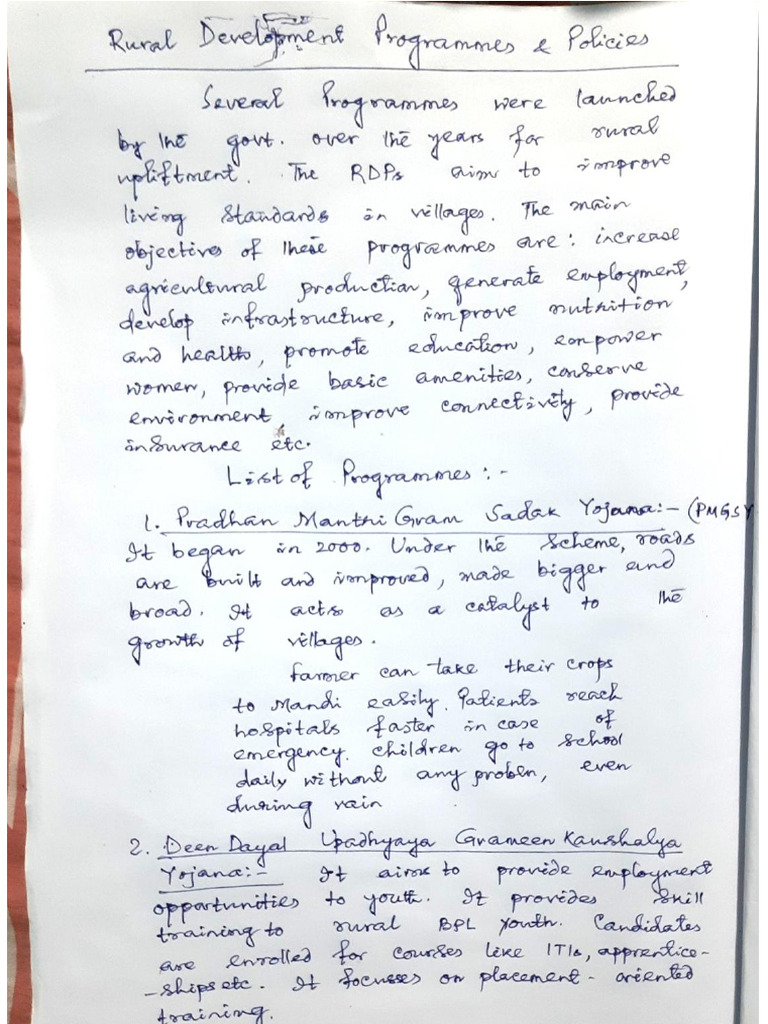 Rural Development Programmes & Policies
Several Programmes were launched
by the govt. over the years for rural
upliftment. The RDPs aim to improve
living Standards in villages. The main
objectives of these programmes are: increase
agricultural production, generate employment,
develop infrastructure, improve nutrition
and health, promote education, empower
women, provide basic amenities, conserve
environment improve connectivity, provide
insurance etc.
List of Programmes:-
1. Pradhan Mantri Gram Sadak Yojana:- (PMGSY
It began in 2000. Under the Scheme, roads
are built and improved, made bigger and
broad. It acts as a catalyst to the
growth of villages.
farmer can take their crops
to Mandi easily. Patients reach
hospitals faster in case of
emergency. children go to School
daily without any problem, even
during rain
2. Deen Dayal Upadhyaya Grameen Kaushalya
Yojana:- It aims to provide employment
opportunities to youth. It provides Skill
training to rural BPL Youth. Candidates
are enrolled for courses like ITIs, apprentice-
-ships etc. It focusses on placement-oriented
training.